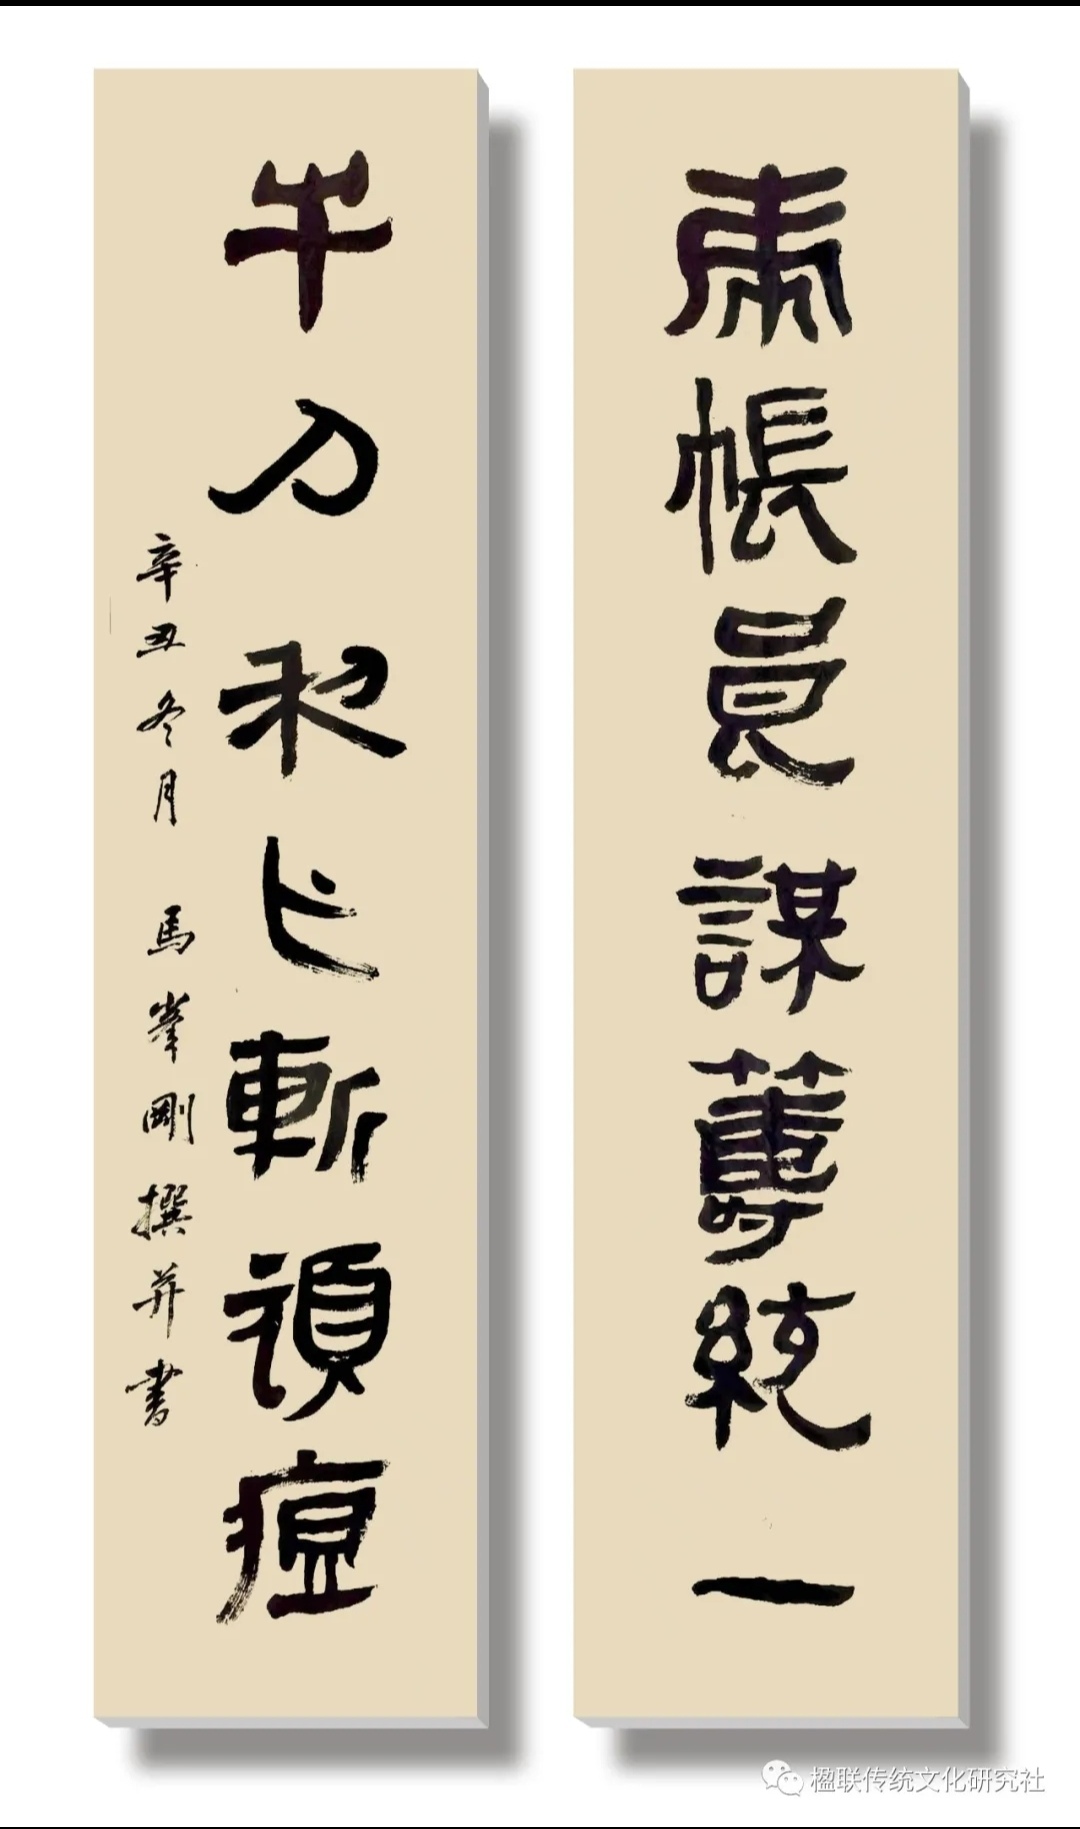 虎帳良謀籌統一
牛刀利匕斬頑瘟
辛丑冬月 馬峯剛撰并書
楹联传统文化研究社